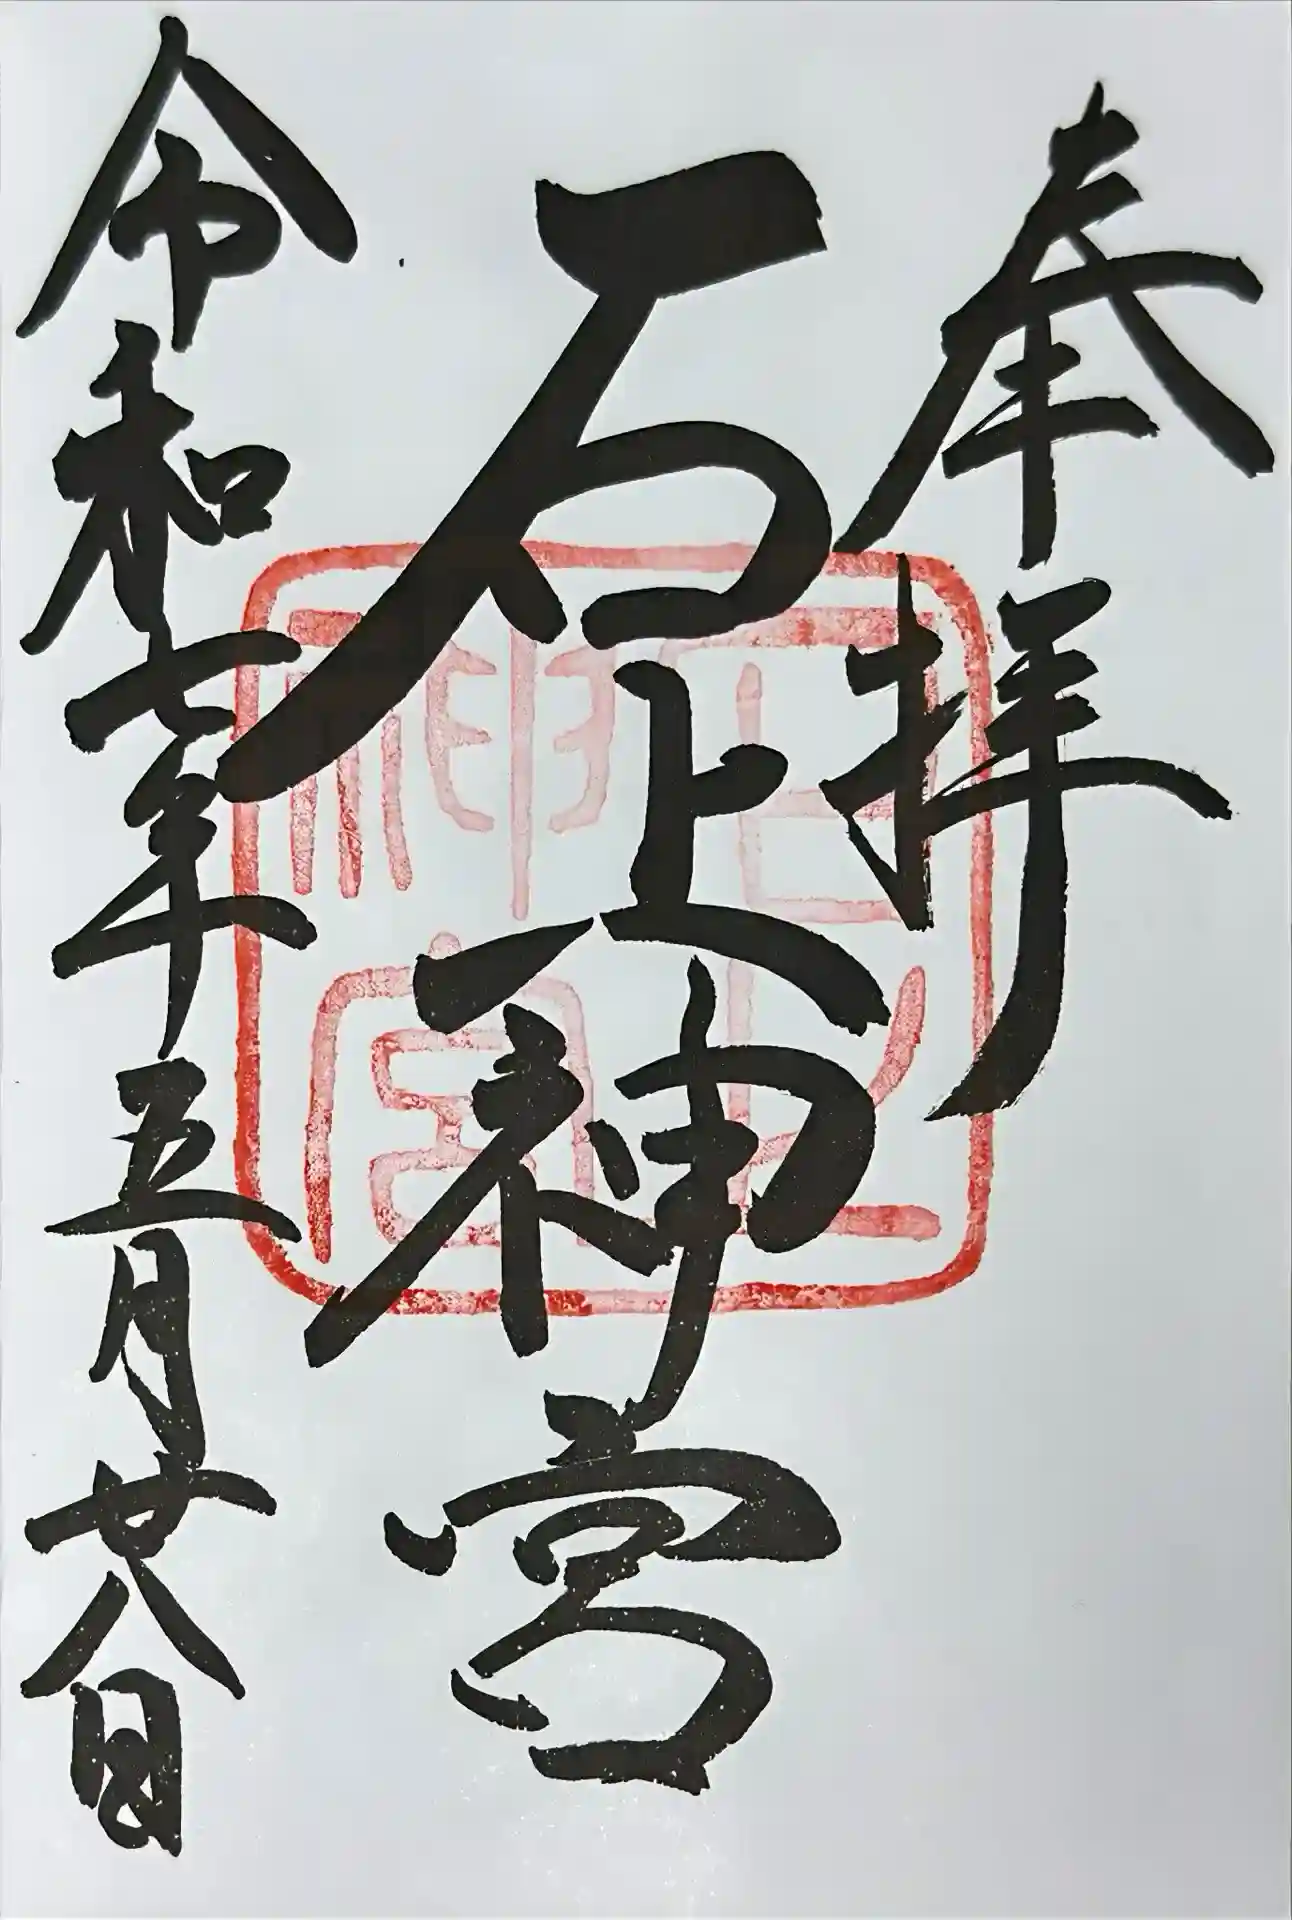 奉拝
石上神宮
令和七年五月廿八日
石上神宮